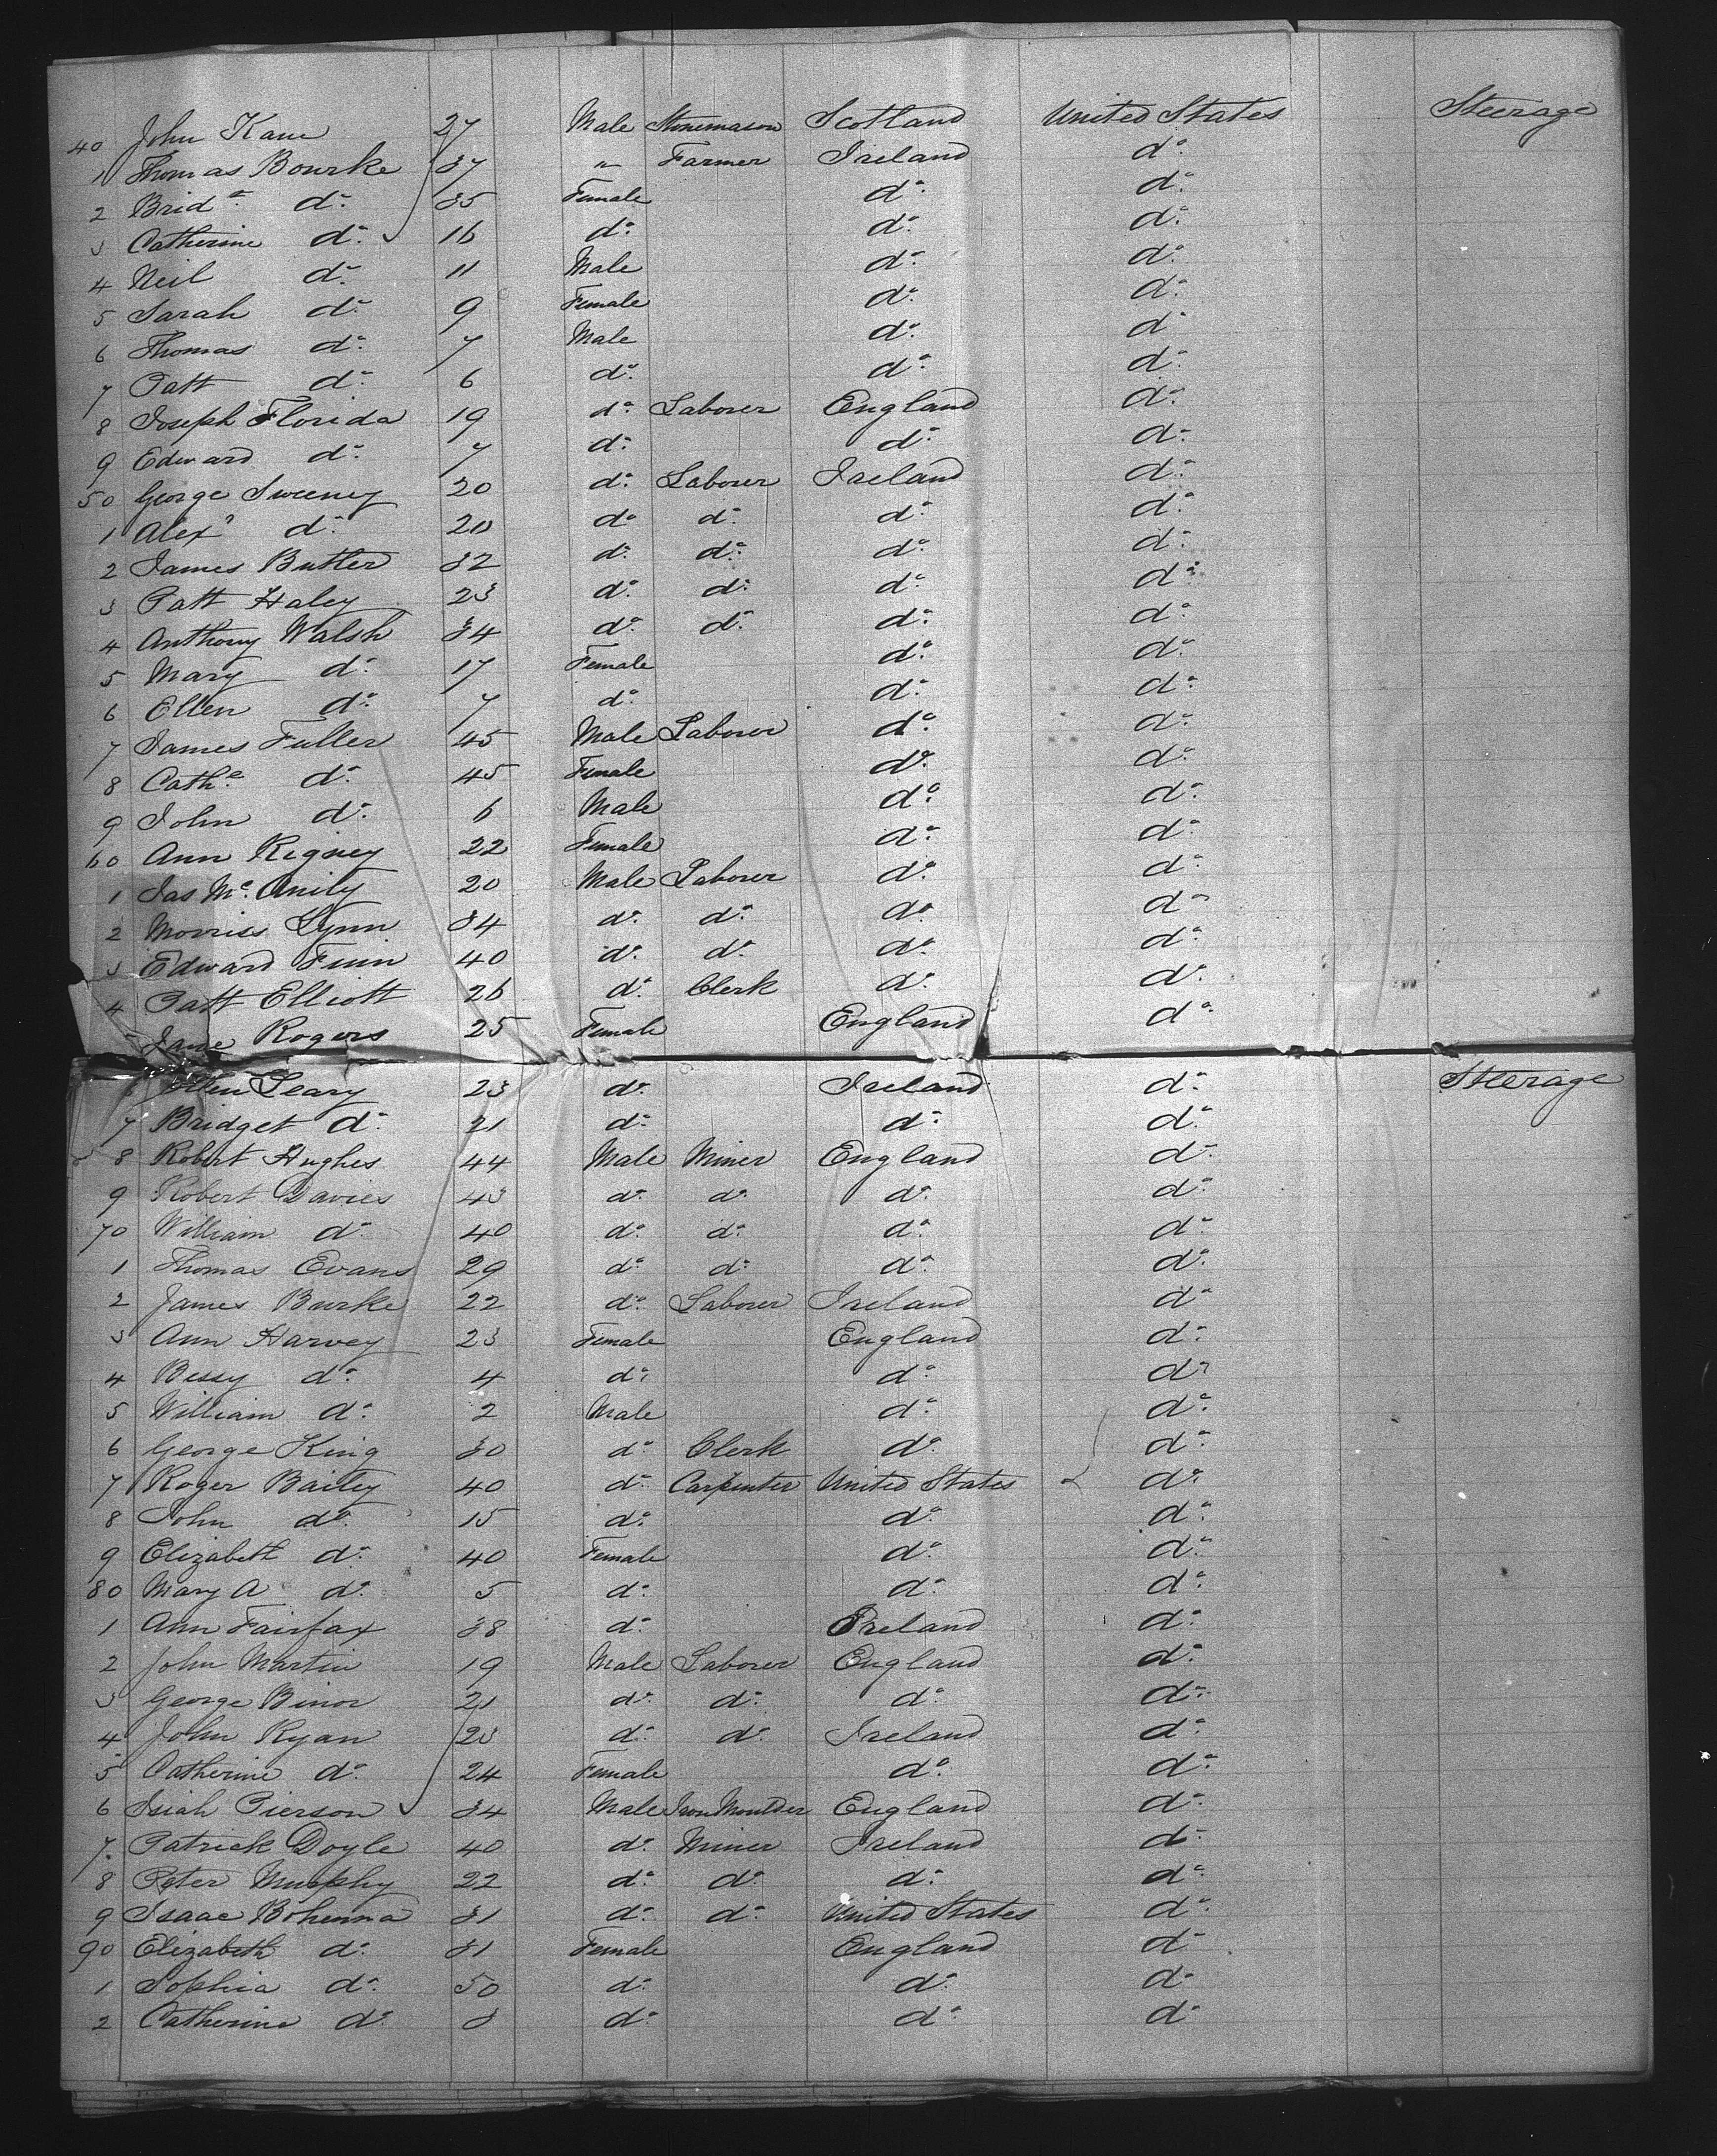 40 John Kane 27 Male Stonemason Scotland United States Steerage
1 Thomas Bourke 37 " Farmer Ireland do.
2 Bridt. do. 35 Female do. do.
3 Catherine do. 16 do. do. do.
4 Neil do. 11 Male do. do.
5 Sarah do. 9 Female do. do.
6 Thomas do. 7 Male do. do.
7 Patt do. 6 do. do. do.
8 Joseph Florida 19 do. Laborer England do.
9 Edward do. 7 do. do. do.
50 George Sweeney 20 do. Laborer Ireland do.
1 Alexr do. 20 do. do. do. do.
2 James Butler 32 do. do. do. do.
3 Patt Haley 23 do. do. do. do.
4 Anthony Walsh 34 do. do. do. do.
5 Mary do. 17 Female do. do.
6 Ellen do. 7 do. do. do.
7 James Fuller 45 Male Laborer do. do.
8 Cathe. do. 45 Female do. do.
9 John do. 6 Male do. do.
60 Ann Rigney 22 Female do. do.
1 Jas Mc. Anily 20 Male Laborer do. do.
2 Morriss Lynn 34 do. do. do. do.
3 Edward Finn 40 do. do. do. do.
4 Patt Elliott 26 do. Clerk do. do.
5 Jane Rogers 25 Female England do.
Ellen Leary 23 do. Ireland do. Steerage
7 Bridget do. 21 do. do. do.
8 Robert Hughes 44 Male Miner England do.
9 Robert Davies 43 do. do. do. do.
70 William do. 40 do. do. do. do.
1 Thomas Evans 29 do. do. do. do.
2 James Burke 22 do. Laborer Ireland do.
3 Ann Harvey 23 Female England do.
4 Bessy do. 4 do. do. do.
5 William do. 2 Male do. do.
6 George King 30 do. Clerk do. do.
7 Roger Bailey 40 do. Carpenter United States do.
8 John do. 15 do. do. do.
9 Elizabeth do. 40 Female do. do.
80 Mary A do. 5 do. do. do.
1 Ann Fairfax 38 do. Ireland do.
2 John Martin 19 Male Laborer England do.
3 George Binor 21 do. do. do. do.
4 John Ryan 23 do. do. Ireland do.
5 Catherine do. 24 Female do. do.
6 Isiah Pierson 34 Male Iron Moulder England do.
7. Patrick Doyle 40 do. Miner Ireland do.
8 Peter Murphy 22 do. do. do. do.
9 Isaac Bohenna 31 do. do. United States do.
90 Elizabeth do. 31 Female England do.
1 Sophia do. 50 do. do. do.
2 Catherine do. do. do. do.